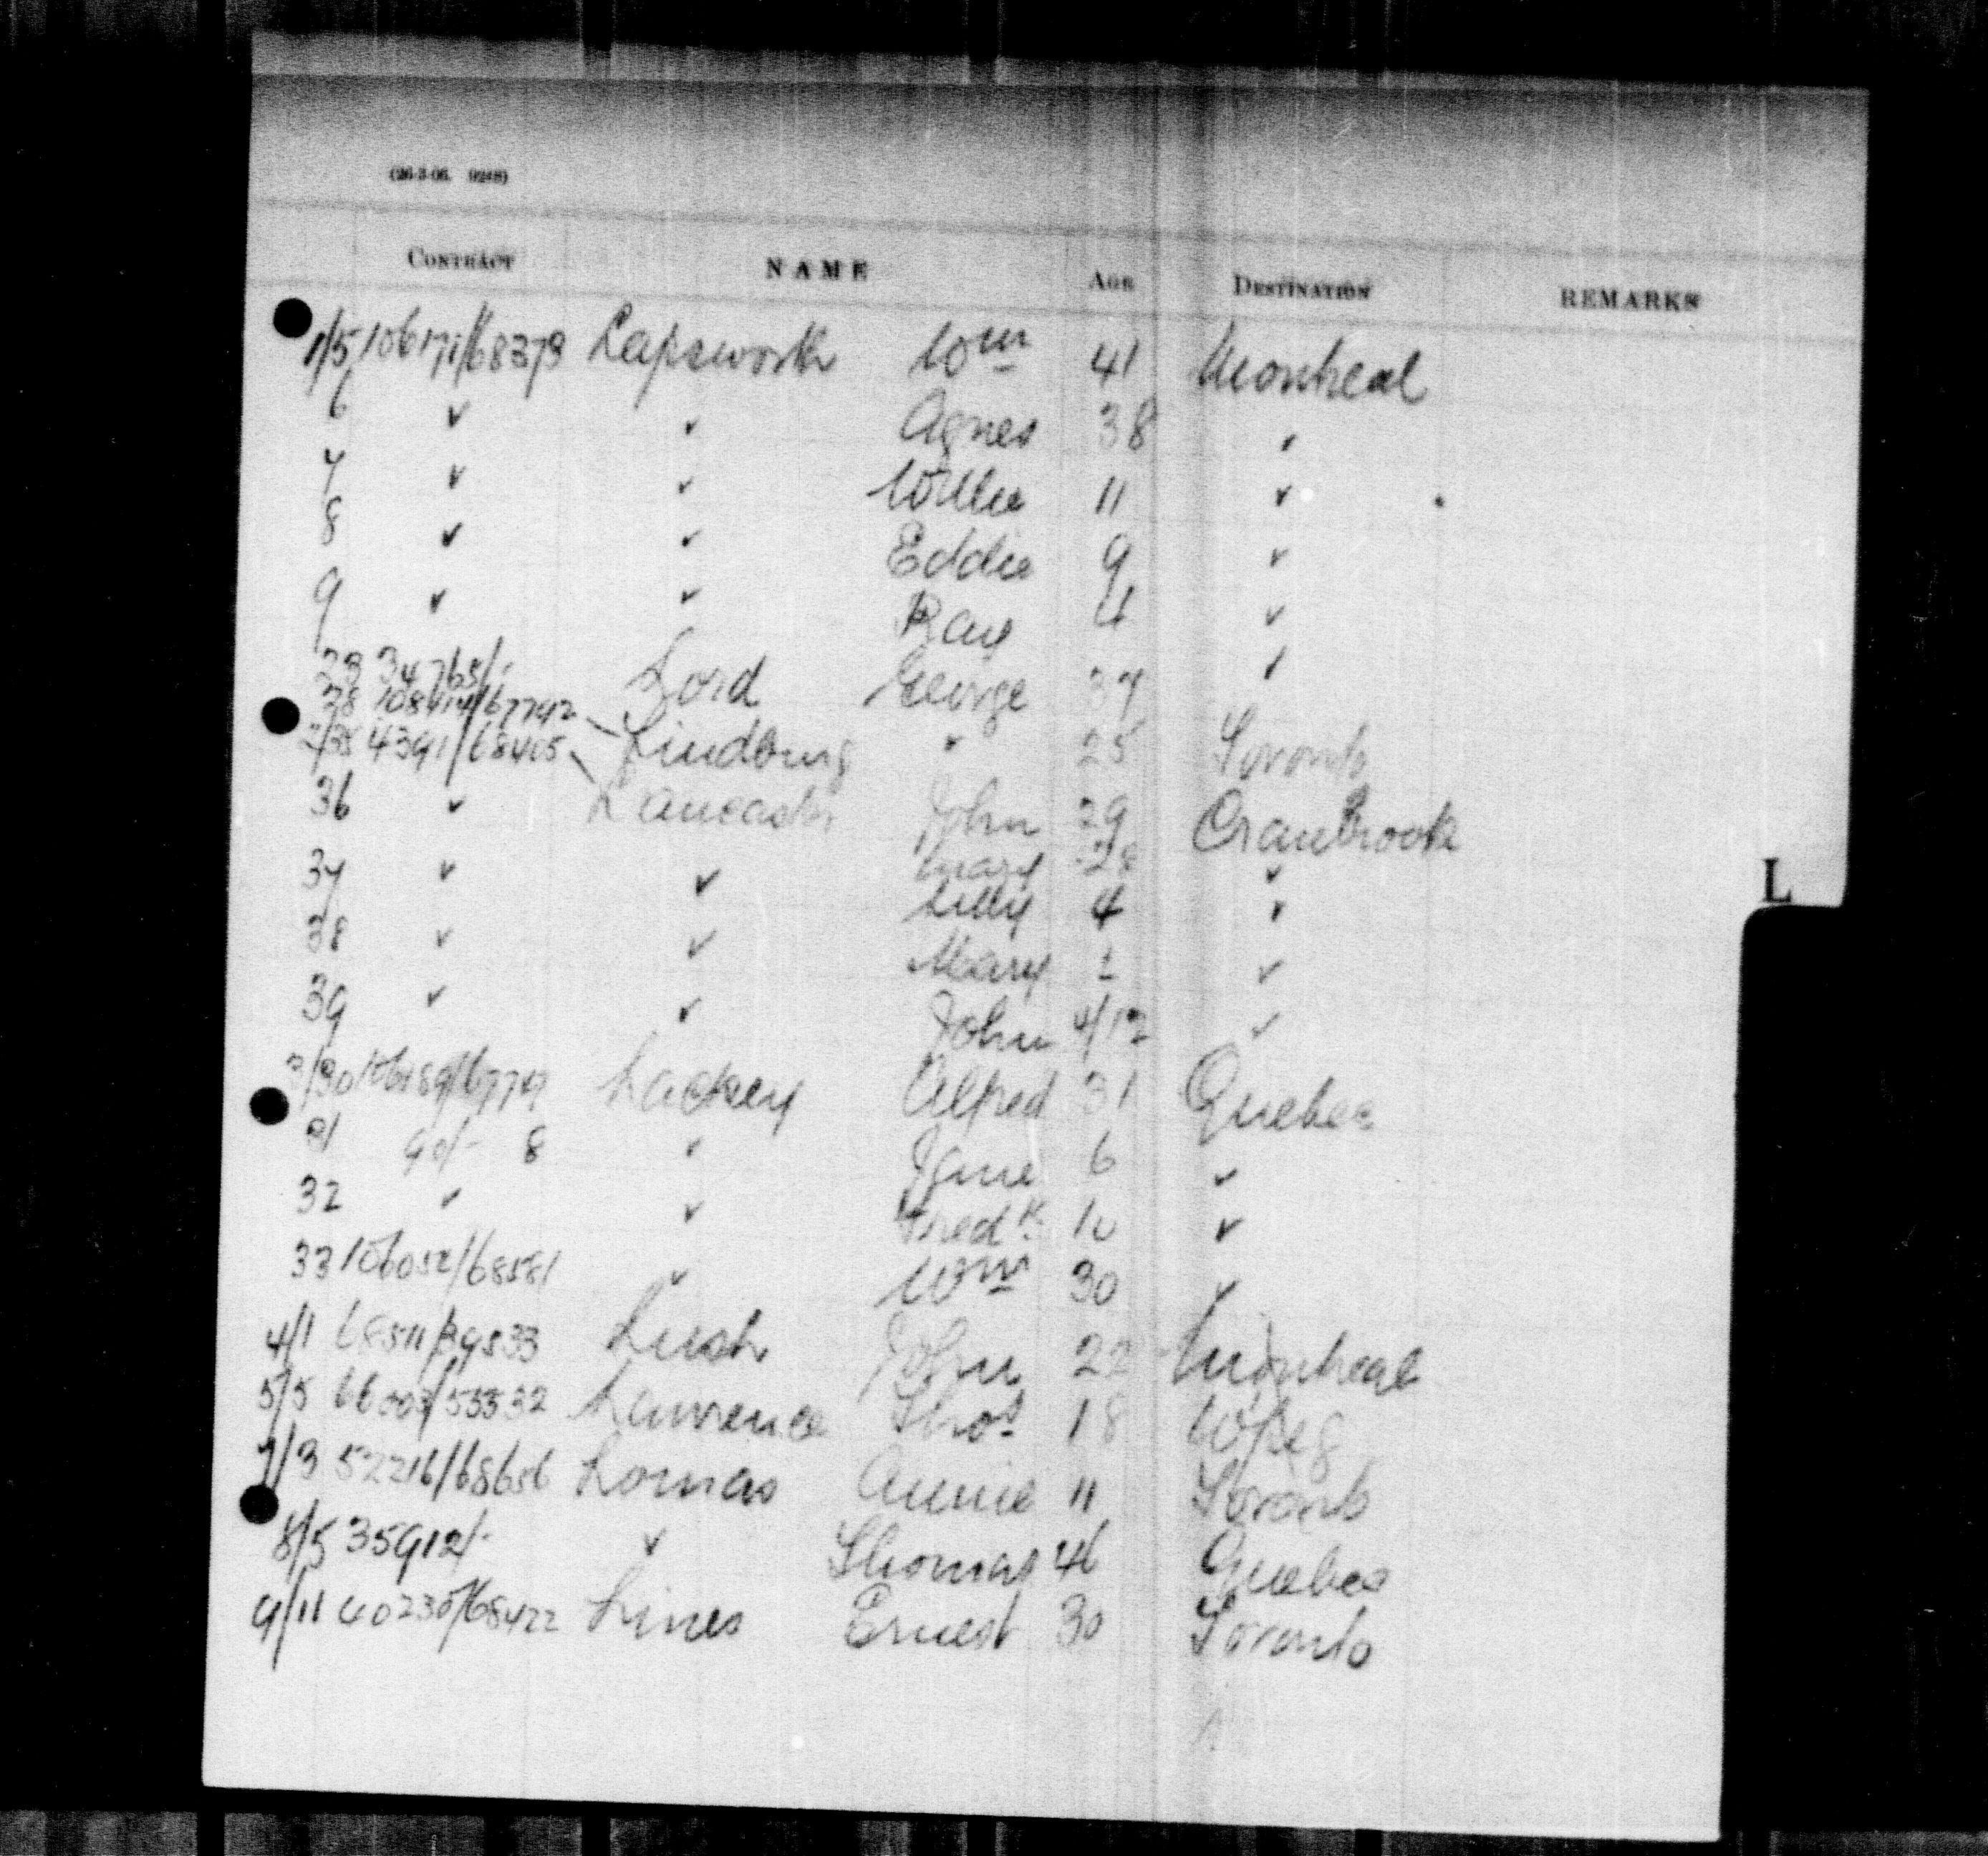 (26-3-06. 9248)
CONTRACT NAME AGE DESTINATION REMARKS
1/5 106171/68379 Lapsworth Wm 41 Montreal
6 ✓ ✓ Agnes 38 ✓
7 ✓ ✓ Willie 11 ✓
8 ✓ ✓ Eddie 9 ✓
9 ✓ ✓ Ray 4 ✓
23 34765/- Lord George 37 ✓
28 /67742 Lindburg " 25 Toronto
2/35 4391/68405 Lancaster John 29 Cranbrook
36 ✓ ✓ Mary 28 ✓
37 ✓ ✓ Lilly 4 ✓
38 ✓ ✓ Mary 1 ✓
39 ✓ ✓ John 4/12 ✓
3/30 Lackey Alfred 31 Quebec
31 90/- 8 ✓ Jane 6 ✓
32 ✓ ✓ Fredk 10 ✓
33 106052/68581 ✓ Wm 30 ✓
4/1 68511/39533 Lush John 22 Montreal
5/5 66003/55532 Lawrence Thos 18 Wpeg
7/3 52216/68656 Lomas Annie 11 Toronto
8/5 35912/- ✓ Thomas 46 Quebec
9/11 40230/68422 Lines Ernest 30 Toronto
L